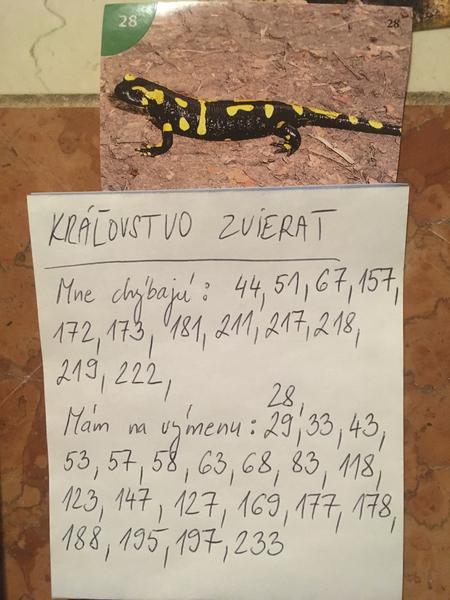 28
28
KRÁĽOVSTVO ZVIERAT
Mne chýbajú: 44, 51, 67, 157,
172, 173, 181, 211, 217, 218,
219, 222,
28,
Mám na výmenu: 29, 33, 43,
53, 57, 58, 63, 68, 83, 118,
123, 147, 127, 169, 177, 178,
188, 195, 197, 233